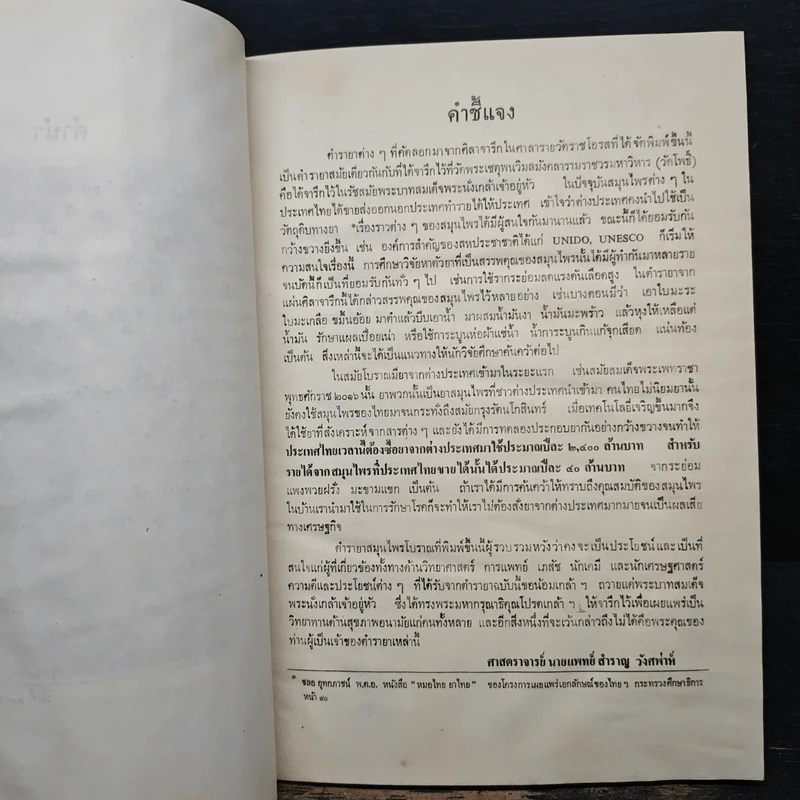 คำชี้แจง
ตำรายาต่าง ๆ ที่คัดลอกมาจากศิลาจารึกในศาลารายวัดราชโอรสที่ได้จัดพิมพ์ขึ้นนี้
เป็นตำรายาสมัยเดียวกันกับที่ได้จารึกไว้ที่วัดพระเชตุพนวิมลมังคลารามราชวรมหาวิหาร (วัดโพธิ์)
คือได้จารึกไว้ในรัชสมัยพระบาทสมเด็จพระนั่งเกล้าเจ้าอยู่หัว ในปัจจุบันสมุนไพรต่าง ๆ ใน
ประเทศไทยได้ขายส่งออกนอกประเทศทำรายได้ให้ประเทศ เข้าใจว่าต่างประเทศคงนำไปใช้เป็น
วัตถุดิบทางยา *เรื่องราวต่าง ๆ ของสมุนไพรได้มีผู้สนใจกันมานานแล้ว ขณะนี้ก็ได้ยอมรับกัน
กว้างขวางยิ่งขึ้น เช่น องค์การสำคัญของสหประชาชาติได้แก่ UNIDO, UNESCO ก็เริ่มให้
ความสนใจเรื่องนี้ การศึกษาวิจัยหาตัวยาที่เป็นสรรพคุณของสมุนไพรนั้นได้มีผู้ทำกันมาหลายราย
จนบัดนี้ก็เป็นที่ยอมรับกันทั่ว ๆ ไป เช่นการใช้รากระย่อมลดแรงดันเลือดสูง ในตำรายาจาก
แผ่นศิลาจารึกนี้ได้กล่าวสรรพคุณของสมุนไพรไว้หลายอย่าง เช่นบางตอนมีว่า เอาใบมะระ
ใบมะเกลือ ขมิ้นอ้อย มาตำแล้วบีบเอาน้ำ มาผสมน้ำมันงา น้ำมันมะพร้าว แล้วหุงให้เหลือแต่
น้ำมัน รักษาแผลเปื่อยเน่า หรือใช้การะบูนห่อผ้าแช่น้ำ น้ำการะบูนกินแก้จุกเสียด แน่นท้อง
เป็นต้น สิ่งเหล่านี้จะได้เป็นแนวทางให้นักวิจัยศึกษาค้นคว้าต่อไป
ในสมัยโบราณมียาจากต่างประเทศเข้ามาในระยะแรก เช่นสมัยสมเด็จพระเพทราชา
พุทธศักราช ๒๐๑๖ นั้น ยาพวกนั้นเป็นยาสมุนไพรที่ชาวต่างประเทศนำเข้ามา คนไทยไม่นิยมยานั้น
ยังคงใช้สมุนไพรของไทยมาจนกระทั่งถึงสมัยกรุงรัตนโกสินทร์ เมื่อเทคโนโลยี่เจริญขึ้นมากจึง
ได้ใช้ยาที่สังเคราะห์จากสารต่าง ๆ และยังได้มีการทดลองประกอบยากันอย่างกว้างขวางจนทำให้
ประเทศไทยเวลานี้ต้องซื้อยาจากต่างประเทศมาใช้ประมาณปีละ ๒,๔๐๐ ล้านบาท สำหรับ
รายได้จากสมุนไพรที่ประเทศไทยขายได้นั้นได้ประมาณปีละ ๔๐ ล้านบาท จากระย่อม
แพงพวยฝรั่ง มะขามแขก เป็นต้น ถ้าเราได้มีการค้นคว้าให้ทราบถึงคุณสมบัติของสมุนไพร
ในบ้านเรานำมาใช้ในการรักษาโรคก็จะทำให้เราไม่ต้องสั่งยาจากต่างประเทศมากมายจนเป็นผลเสีย
ทางเศรษฐกิจ
ตำรายาสมุนไพรโบราณที่พิมพ์ขึ้นนี้ผู้รวบรวมหวังว่าคงจะเป็นประโยชน์และเป็นที่
สนใจแก่ผู้ที่เกี่ยวข้องทั้งทางด้านวิทยาศาสตร์ การแพทย์ เภสัช นักเคมี และนักเศรษฐศาสตร์
ความดีและประโยชน์ต่าง ๆ ที่ได้รับจากตำรายาฉบับนี้ขอน้อมเกล้า ฯ ถวายแด่พระบาทสมเด็จ
พระนั่งเกล้าเจ้าอยู่หัว ซึ่งได้ทรงพระมหากรุณาธิคุณโปรดเกล้า ฯ ให้จารึกไว้เพื่อเผยแพร่เป็น
วิทยาทานด้านสุขภาพอนามัยแก่คนทั้งหลาย และอีกสิ่งหนึ่งที่จะเว้นกล่าวถึงไม่ได้คือพระคุณของ
ท่านผู้เป็นเจ้าของตำรายาเหล่านี้
ศาสตราจารย์ นายแพทย์ สำราญ วังศพ่าห์
* ชลอ อุทกภาชน์ พ.ต.อ. หนังสือ "หมอไทย ยาไทย" ของโครงการเผยแพร่เอกลักษณ์ของไทย ฯ กระทรวงศึกษาธิการ
หน้า ๙๐